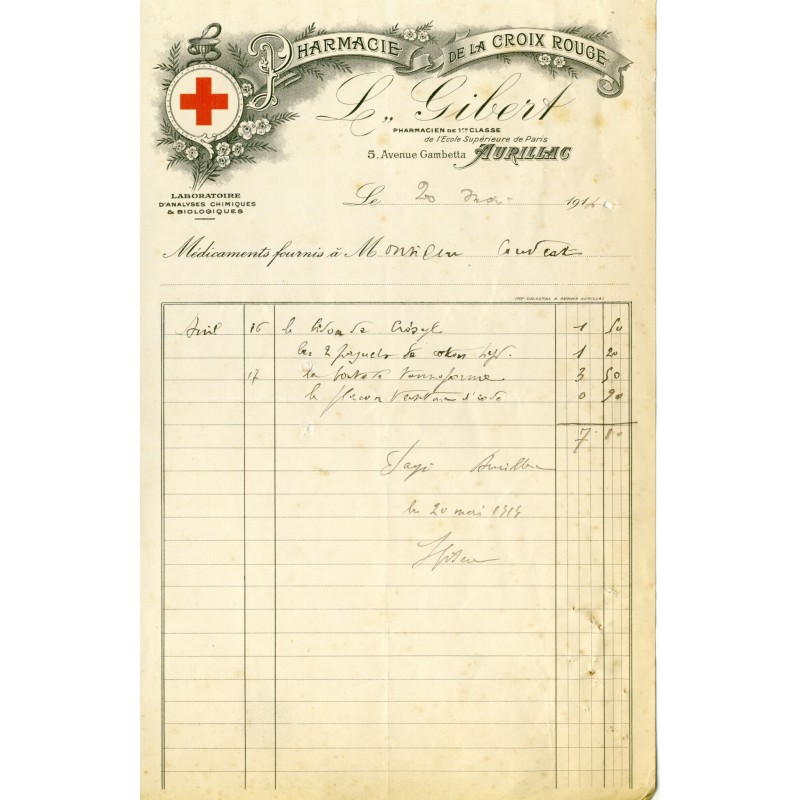 PHARMACIE DE LA CROIX ROUGE
L. Gibert
PHARMACIEN DE 1ère CLASSE
de l'Ecole Supérieure de Paris
5, Avenue Gambetta AURILLAC
LABORATOIRE
D'ANALYSES CHIMIQUES
& BIOLOGIQUES
Le 20 mai 1914
Médicaments fournis à Monsieur
Avril 16 le bidon de Crésyl 1 50
les 2 paquets de coton 1 20
17 la boite de tannoforme 3 50
le flacon teinture d'iode 0 90
7 10
Payé Aurillac
le 20 mai 1914